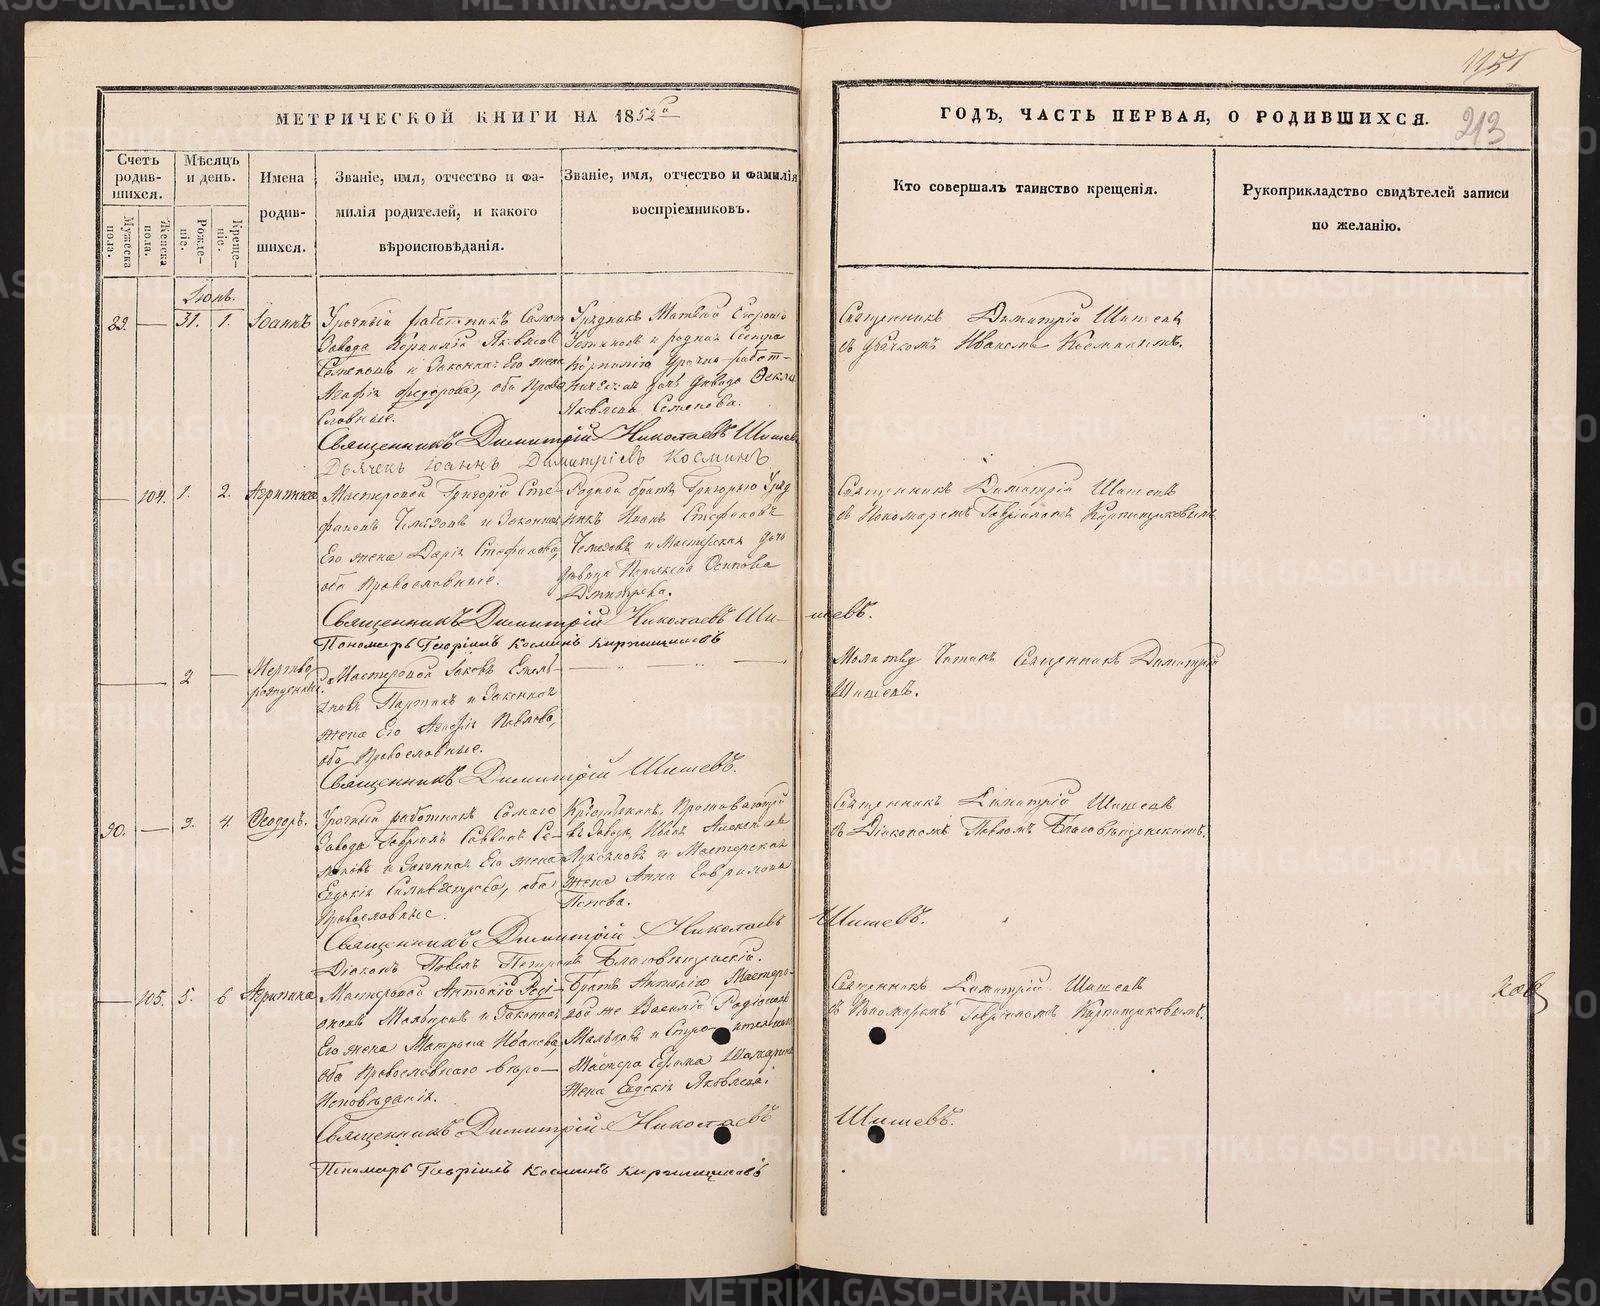 1251
МЕТРИЧЕСКОЙ КНИГИ НА 1852й
ГОДЪ, ЧАСТЬ ПЕРВАЯ, О РОДИВШИХСЯ.
213
Счетъ родив-шихся.
Мужеска пола.
Женска пола.
Мѣсяцъ и день.
Рожде-ніе.
Креще-ніе.
Имена
родив-
шихся.
Званіе, имя, отчество и фа-
милія родителей, и какого
вѣроисповѣданія.
Званіе, имя, отчество и фамилія
воспріемниковъ.
Кто совершалъ таинство крещенія.
Рукоприкладство свидѣтелей записи
по желанію.
Іюнь.
89. — 31. 1. Іоаннъ
Урочный работникъ Самаго
Завода Корнилій Яковлевъ
Семеновъ и Законная Его жена
Агафія Федорова, оба Право
славные.
Урядникъ Матвей Егоровъ
Устиновъ и родная Сестра
Корнилію Урочно-работ-
Яковлева Семенова.
Священникъ Димитрій Шишевъ
съ дьячкомъ Иваномъ Косминымъ.
Священникъ Димитрій Николаевъ Шишевъ
Дьячекъ Іоаннъ Димитріевъ Косминъ
— 104. 1. 2. Агрипина
Мастеровой Григорій Сте-
фановъ Чемезовъ и Законная
Его жена Дарія Стефанова,
оба Православные.
Родной братъ Григорью Уряд
никъ Иванъ Стефановъ
Чемезовъ и Мастерская дочь
Девица Осипова
Дмитріева.
Священникъ Димитрій Шишевъ
съ Пономаремъ Гавріиломъ Кирпищиковымъ
Священникъ Димитрій Николаевъ Шишевъ.
Пономарь Гавріилъ Косминъ Кирпищиковъ
— — 2 —
Мертво
рожденный.
Мастеровой Іаковъ Емель
яновъ и Законная
жена Его Агафія Павлова,
оба Православные.
Молитву Читалъ Священникъ Димитрій
Шишевъ.
Священникъ Димитрій Шишевъ.
90. — 3. 4. Феодоръ.
Урочный работникъ Самаго
Завода Гавріилъ Саввинъ Се-
меновъ и Законная Его жена
Евдокія Силивестрова, оба
Православные.
въ Заводе, Иванъ Алексеевъ
Лукояновъ и Мастерская
жена Анна
Попова.
Священникъ Димитрій Шишевъ
съ Діакономъ Павломъ Благовѣщенскимъ.
Священникъ Димитрій Николаевъ Шишевъ.
Діаконъ Павелъ Петровъ Благовѣщенскій.
— 105. 5. 6 Агрипина
Мастеровой Антоній Роді-
оновъ Мальцевъ и Законная
Его жена Матрона Иванова,
оба Православнаго вѣро-
исповѣданія.
Братъ Антонію Мастеро-
вой же Василій Родіоновъ
Мастера Ефима
жена Евдокія Яковлева.
Священникъ Димитрій Шишевъ
съ Пономаремъ Гавріиломъ Кирпищиковымъ.
Священникъ Димитрій Николаевъ Шишевъ.
Пономарь Гавріилъ Косминъ Кирпищиковъ
METRIKI.GASO-URAL.RU